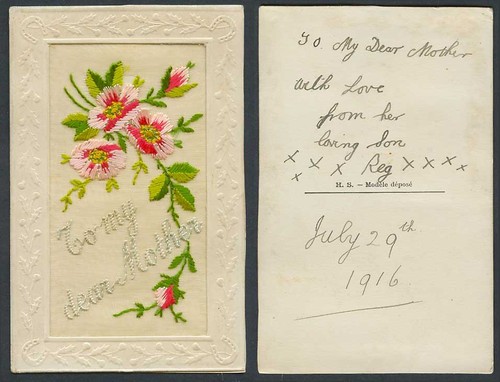 To my
dear Mother
To My Dear Mother
with Love
from her
loving Son
x x x x Reg x x x x x
H. S. – Modèle déposé
July 29th
1916